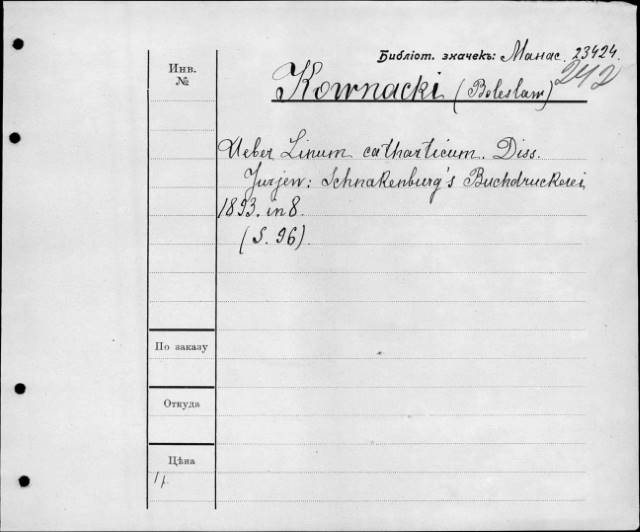 Библіот. значекъ: Манас. 23424.
242
Инв.
№
Kownacki (Boleslaw)
Ueber Linum catharticum. Diss.
Jurjew: Schnakenburg's Buchdruckerei
1893. in 8.
(S. 96).
По заказу
Откуда
Цѣна
1 р.